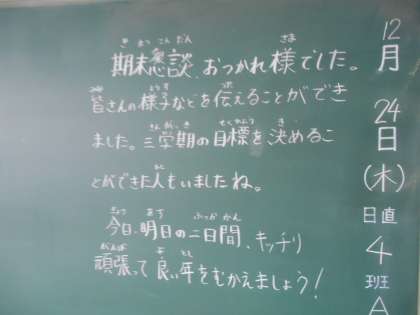 12月24日(木)日直4班A
期末懇談、おつかれ様でした。
皆さんの様子などを伝えることができ
ました。三学期の目標を決めるこ
とができた人もいましたね。
今日、明日の二日間、キッチリ
頑張って良い年をむかえましょう!